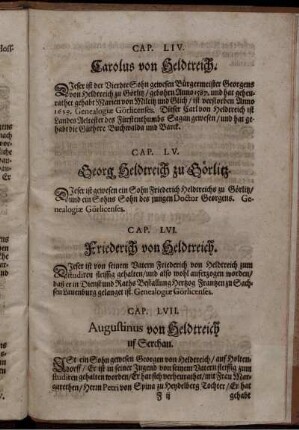 CAP. LIV.
Carolus von Heldtreich.
Dieser ist der Vierdte Sohn gewesen Bürgermeister Georgens
von Heldtreich zu Görlitz / gebohrn Anno 1567. und hat geheu-
rathet gehabt Marien von Militz und Glich / ist verstorben Anno
1639. Genealogiæ Görlicenses. Dieser Carl von Heldtreich ist
Landes Aeltester des Fürstenthumbs Sagan gewesen / und hat ge-
habt die Güthere Buchwalda und
CAP. LV.
Georg Heldtreich zu Görlitz.
Dieser ist gewesen ein Sohn Friederich Heldtreichs zu Görlitz /
und ein Sohns Sohn des jungen Doctor Georgens. Ge-
nealogiæ Görlicenses.
CAP. LVI.
Friederich von Heldtreich.
Dieser ist von seinem Vatern Friederich von Heldtreich zum
studiren fleissig gehalten / und also wohl aufferzogen worden /
daß er in Dienst und Raths Bestallung Hertzog Frantzen zu Sach-
sen Lauenburg gelanget ist. Genealogiæ Görlicenses.
CAP. LVII.
Augustinus von Heldtreich
uf Serchau.
Ist ein Sohn gewesen Georgen von Heldtreich / auf Holten-
dorff / Er ist in seiner Jugend von seinem Vatern fleissig zum
studiren gehalten worden / Er hat sich verheurathet / mit Frau Mar-
garethen / Herrn Petri von Spina zu Heydelberg Tochter / Er hat
F ij gehabt